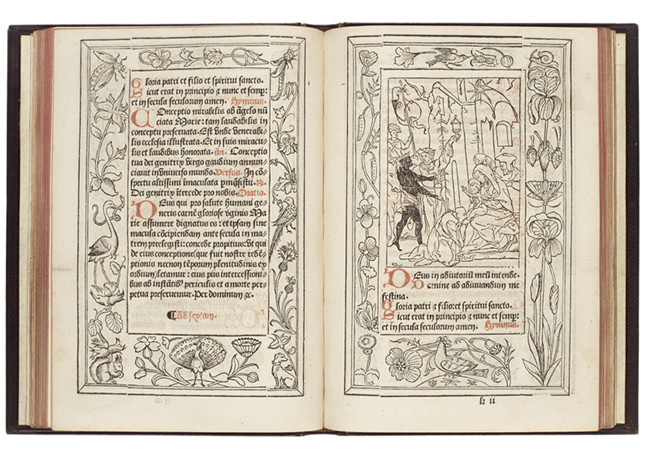 Gloria patri et filio et spiritui sancto.
sicut erat in principio et nunc et semp:
et in secula seculorum amen. Hymnus.
Conceptio mirabilis ab ãgelo nũ
ciata Marie: tam laudabilis in
conceptu preseruata. Est unde venerabi
lis ecclesia illustrata. Et in suis miracu
lis et laudibus honorata. añ. Conceptio
tua dei genitrix virgo gaudium annun
ciauit in vniuerso mundo. Versus. In cõ
spectu altissimi imaculata pmãsisti. R.
Dei genitrix itercede pro nobis. Oratio.
Deus qui pro salute humani ge
neris carnẽ gloriose virginis Ma
rie assumere dignatus es: et ipsam sine
macula cõcipiendam ante secula in ma
trem preelegisti: concede propitius: vt qui
de eius conceptione (que fuit nostre redẽ
ptionis necnon tẽporum plenitudinis ex
ordium) letamur: eius piis intercessioni
bus ab instãtibus periculis et a morte per
petua preseruemur. Per dominum
¶ Ad sextam.
Deus in adiutorium meũ intende.
Domine ad adiuuandum me
festina.
Gloria patri et filio: et spiritui sancto.
sicut erat in principio et nunc et semp:
et in secula seculorum amen. Hymnus.